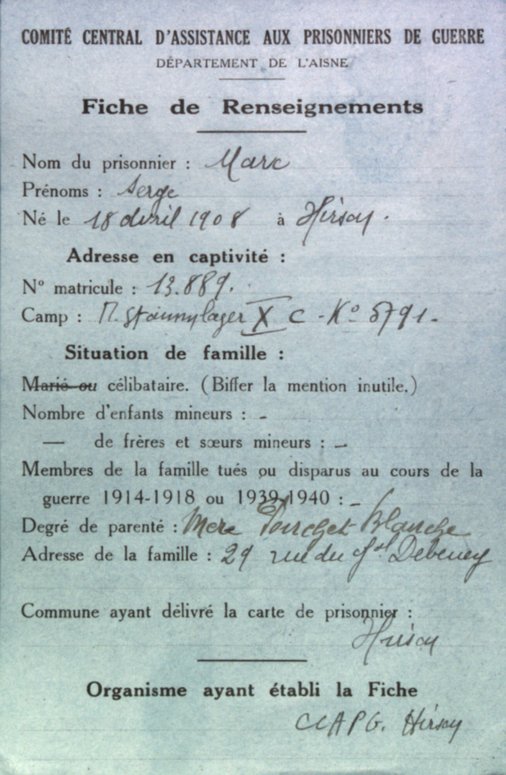 COMITÉ CENTRAL D'ASSISTANCE AUX PRISONNIERS DE GUERRE
DÉPARTEMENT DE L'AISNE
Fiche de Renseignements
Nom du prisonnier : Marc
Prénoms : Serge
Né le 18 avril 1908 à Hirson.
Adresse en captivité :
N° matricule : 13.889.
Camp : X C - K° 5791-
Situation de famille :
Marié ou célibataire. (Biffer la mention inutile.)
Nombre d'enfants mineurs : -
— de frères et sœurs mineurs : -
Membres de la famille tués ou disparus au cours de la
guerre 1914-1918 ou 1939-1940 : -
Degré de parenté : Mère Blanche
Adresse de la famille : 29 rue du Gal Debeney
Commune ayant délivré la carte de prisonnier :
Hirson
Organisme ayant établi la Fiche
CCAPG. Hirson